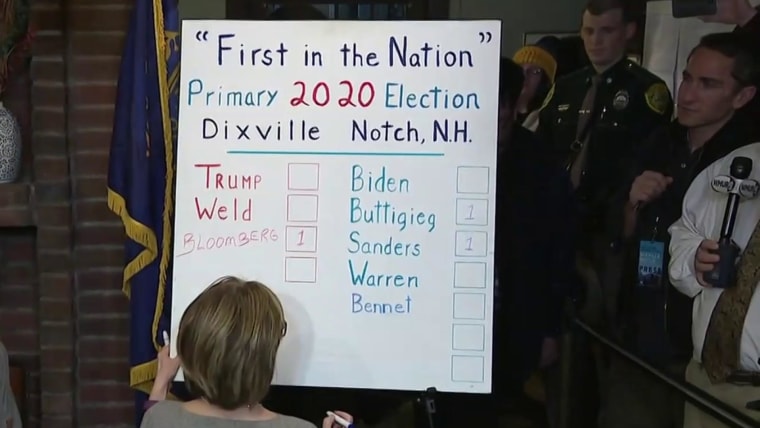 “First in the Nation”
Primary 2020 Election
Dixville Notch, N.H.
TRUMP
Weld
BLOOMBERG 1
Biden
Buttigieg 1
Sanders 1
Warren
Bennet
WMUR
PRESS